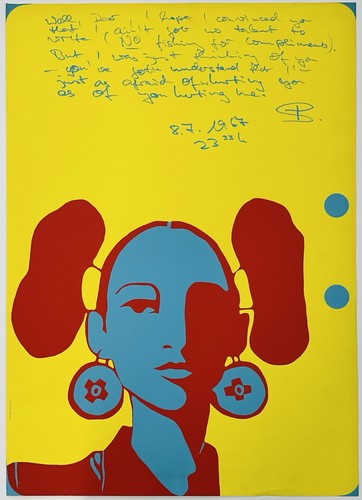 Well, Dear — I hope I convinced you
that I ain't got no talent to
write! (NO fishing for compliments).
But I was just thinking of you
— you've gotta understand that I'm
just as afraid of hurting you
as of you hurting me.
8.7.1967
23 33 h